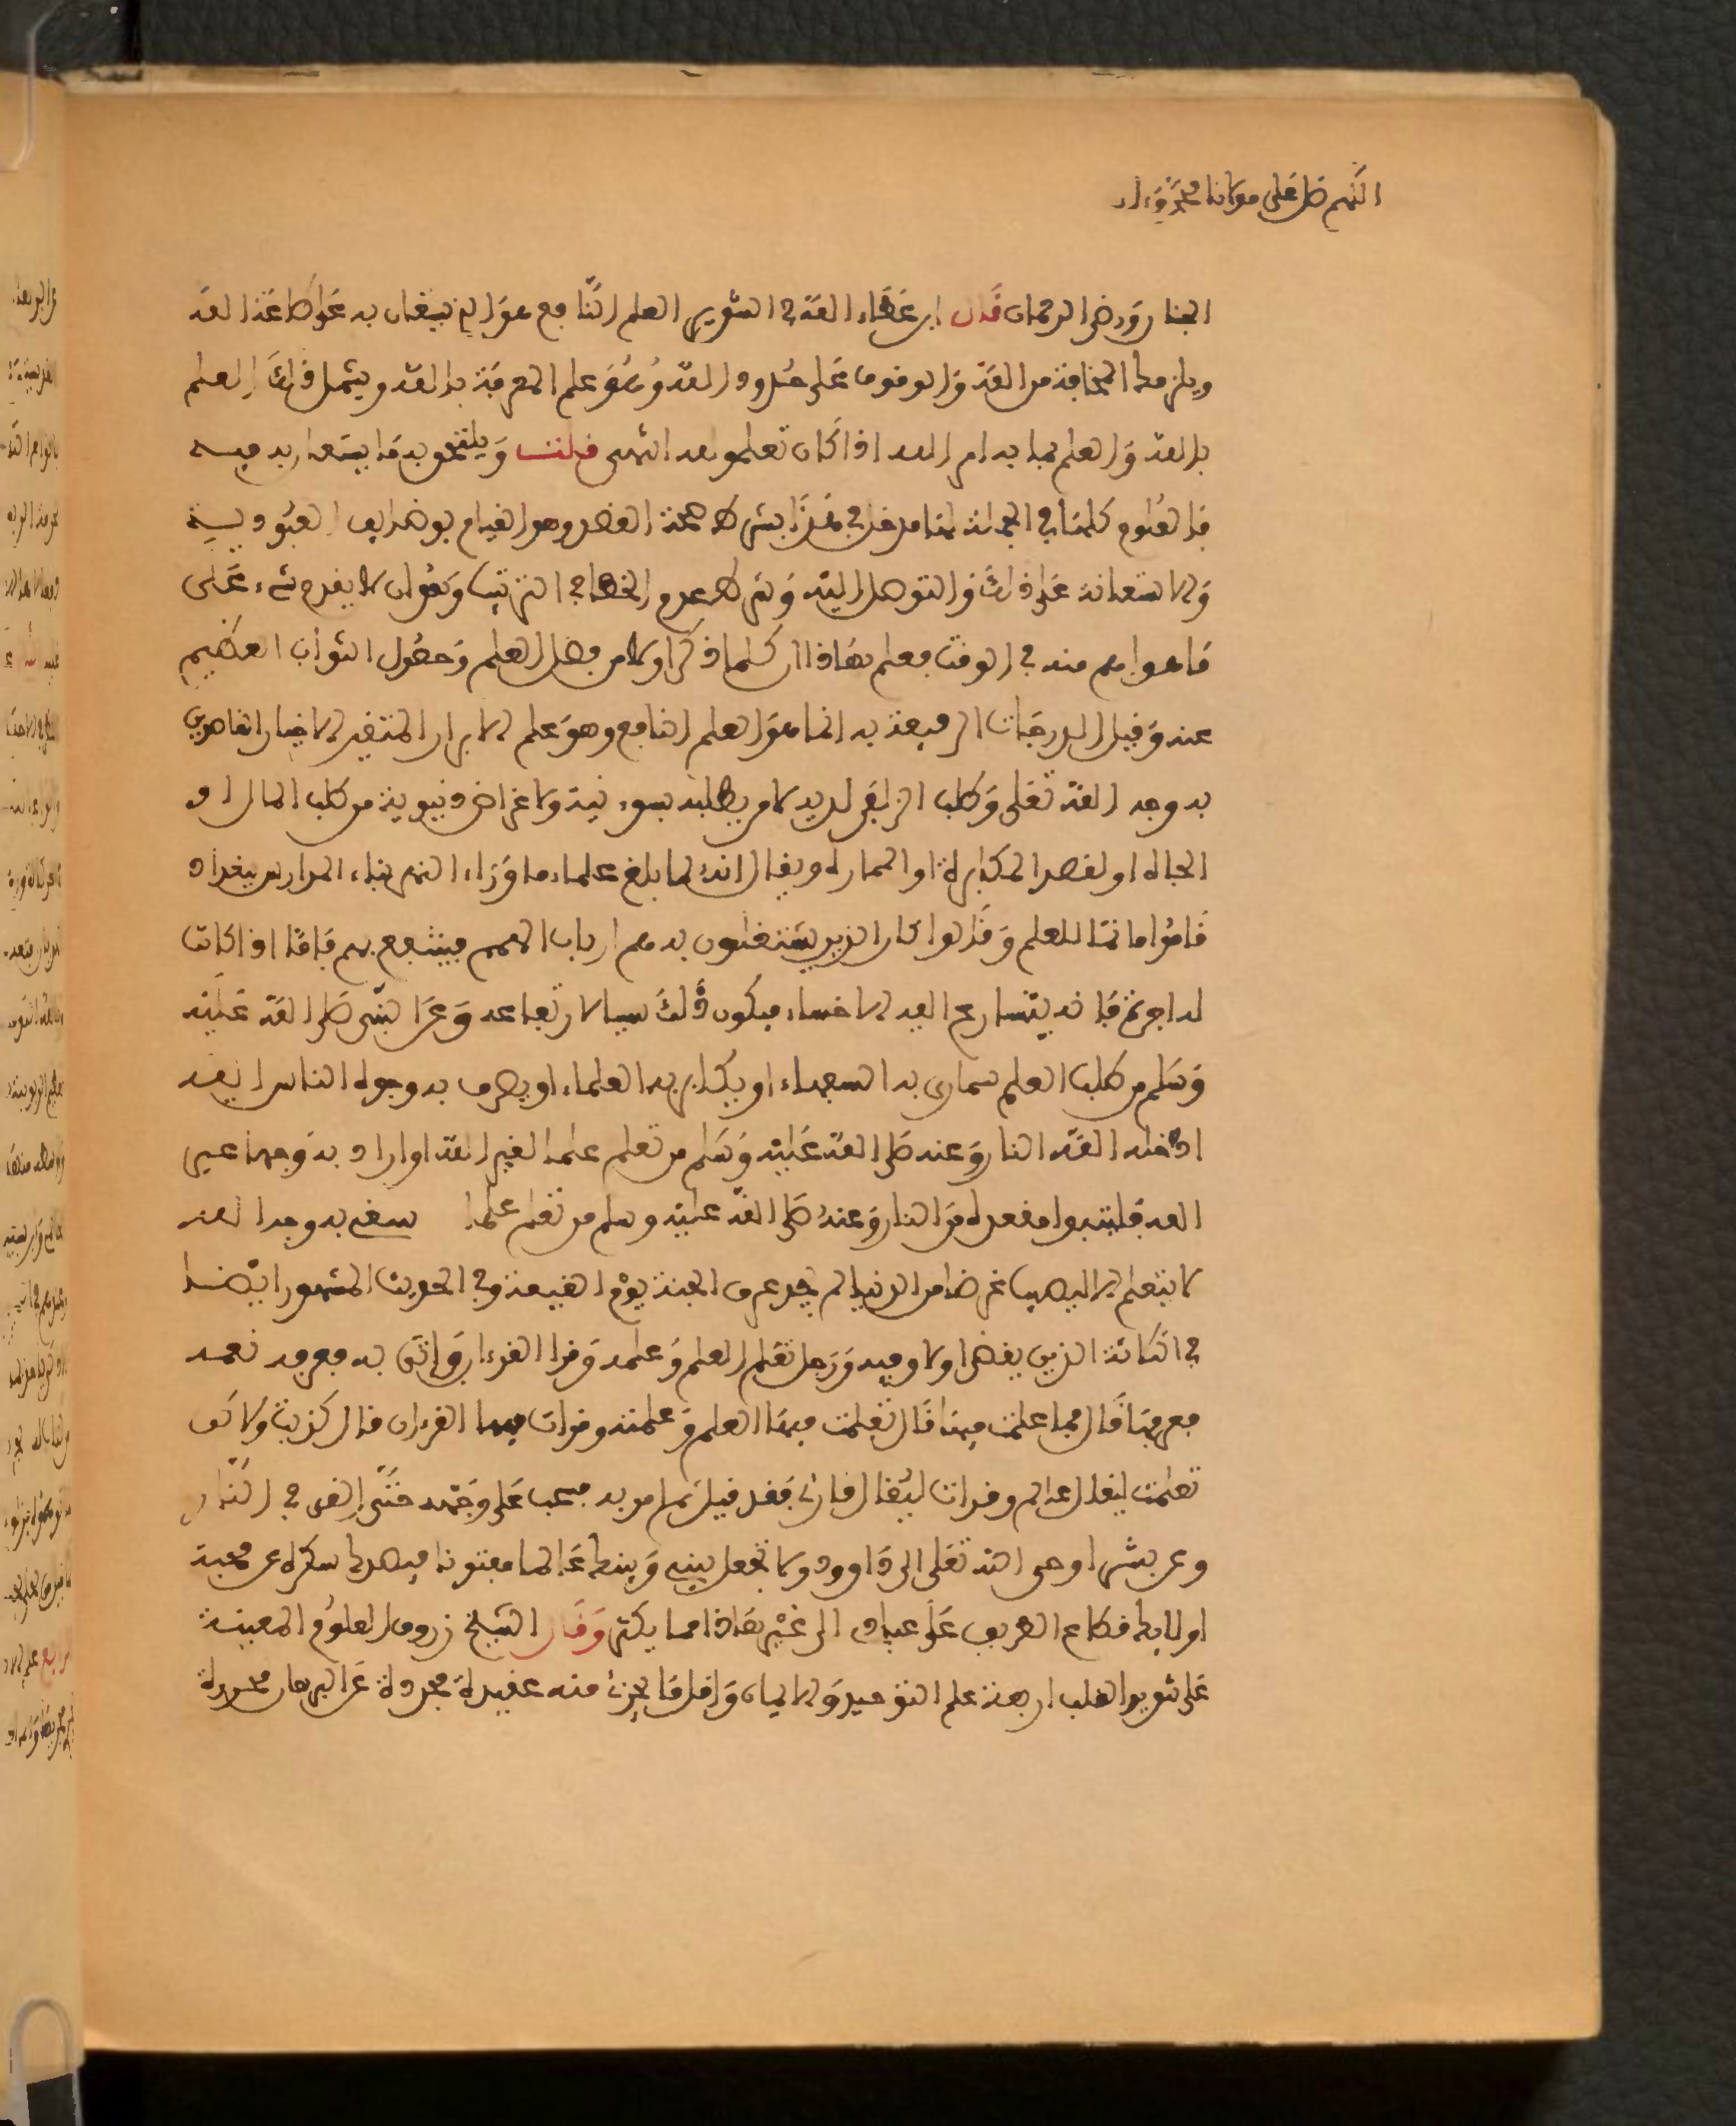 اللهم صل على مولانا محمد وءاله
الجنا ورضى الرحمان قال ابن عطاء الله في التنوير العلم النافع هو الذي يستعان به على طاعة الله
ويلزمك المخافة من الله والوقوف على حدود الله وهو علم المعرفة بالله ويشمل ذلك العلم
بالله والعلم بما به امر الله اذا كان تعلمه لله انتهى قلت ويلتحق به ما يستعان به فيه
فالعلوم كلها في الجملة لها مدخل في هذا بشرط صحة القصد وهو القيام بوظايف العبودية
والاستعانة على ذلك والتوصل اليه وشرط عدم الخطا في الترتيب وهو ان لا يقدم شيء على
ما هو اهم منه في الوقت فعلم بهذا ان كلما ذكر اولا من فضل العلم وحصول الثواب العظيم
عنه ونيل الدرجات الرفيعة به انما هو العلم النافع وهو علم الابرار المتقين الاخيار القاصدين
به وجه الله تعلى وطلب الزلفى لديه لا من يطلبه بسوء نية ولاغراض دنيوية من طلب المال او
الجاه او لقصد المكابرة او المماراة ويقال انه لما بلغ علماء ما وراء النهر بناء المدارس ببغداد
قاموا ماتما للعلم وقالوا كان الذين يشتغلون به هم ارباب الهمم فينتفع بهم فاما اذا كانت
له اجرة فانه يتسارع اليه الاخساء فيكون ذلك سببا لارتفاعه وعن النبي صلى الله عليه
وسلم من طلب العلم ليمارى به السفهاء او يكابر به العلماء او يصرف به وجوه الناس اليه
ادخله الله النار وعنه صلى الله عليه وسلم من تعلم علما لغير الله او اراد به وجها غير
الله فليتبوا مقعده من النار وعنه صلى الله عليه وسلم من تعلم علما يبتغى به وجه الله
لا يتعلمه الا ليصيب غرضا من الدنيا لم يجد عرف الجنة يوم القيمة وفي الحديث المشهور ايضا
في الثلاثة الذين يقضى اولا وفيه ورجل تعلم العلم وعلمه وقرا القرءان واتى به فعرفه نعمه
فعرفها قال فما عملت فيها قال تعلمت فيها العلم وعلمته وقرات فيها القرءان قال كذبت ولاكن
تعلمت ليقال عالم وقرات ليقال قارئ فقد قيل ثم امر به فسحب على وجهه حتى القى في النار
وعن بشر اوحى الله تعلى الى داوود ولا تجعل بيني وبينك عالما مفتونا فيصدك بسكره عن محبتى
اولائك قطاع الطريق على عبادى الى غير هذا مما يكثر وقال الشيخ زروق العلوم المعينة
على تنوير القلب اربعة علم التوحيد والايمان واقل ما يجزئ منه عقيدة مجردة عن البرهان محررة